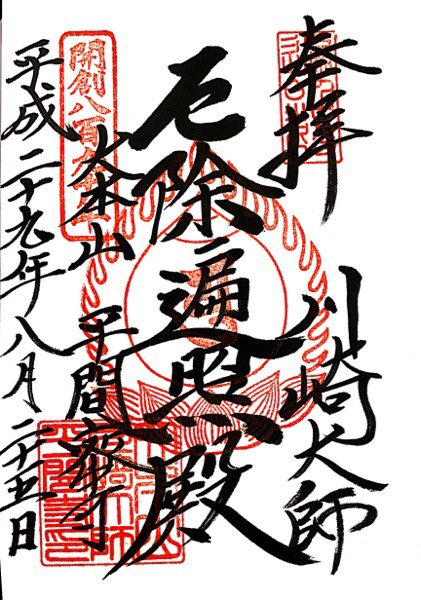 奉拝
川崎大師
厄除遍照殿
開創八百九十年
大本山
平間寺
平成二十九年八月二十五日